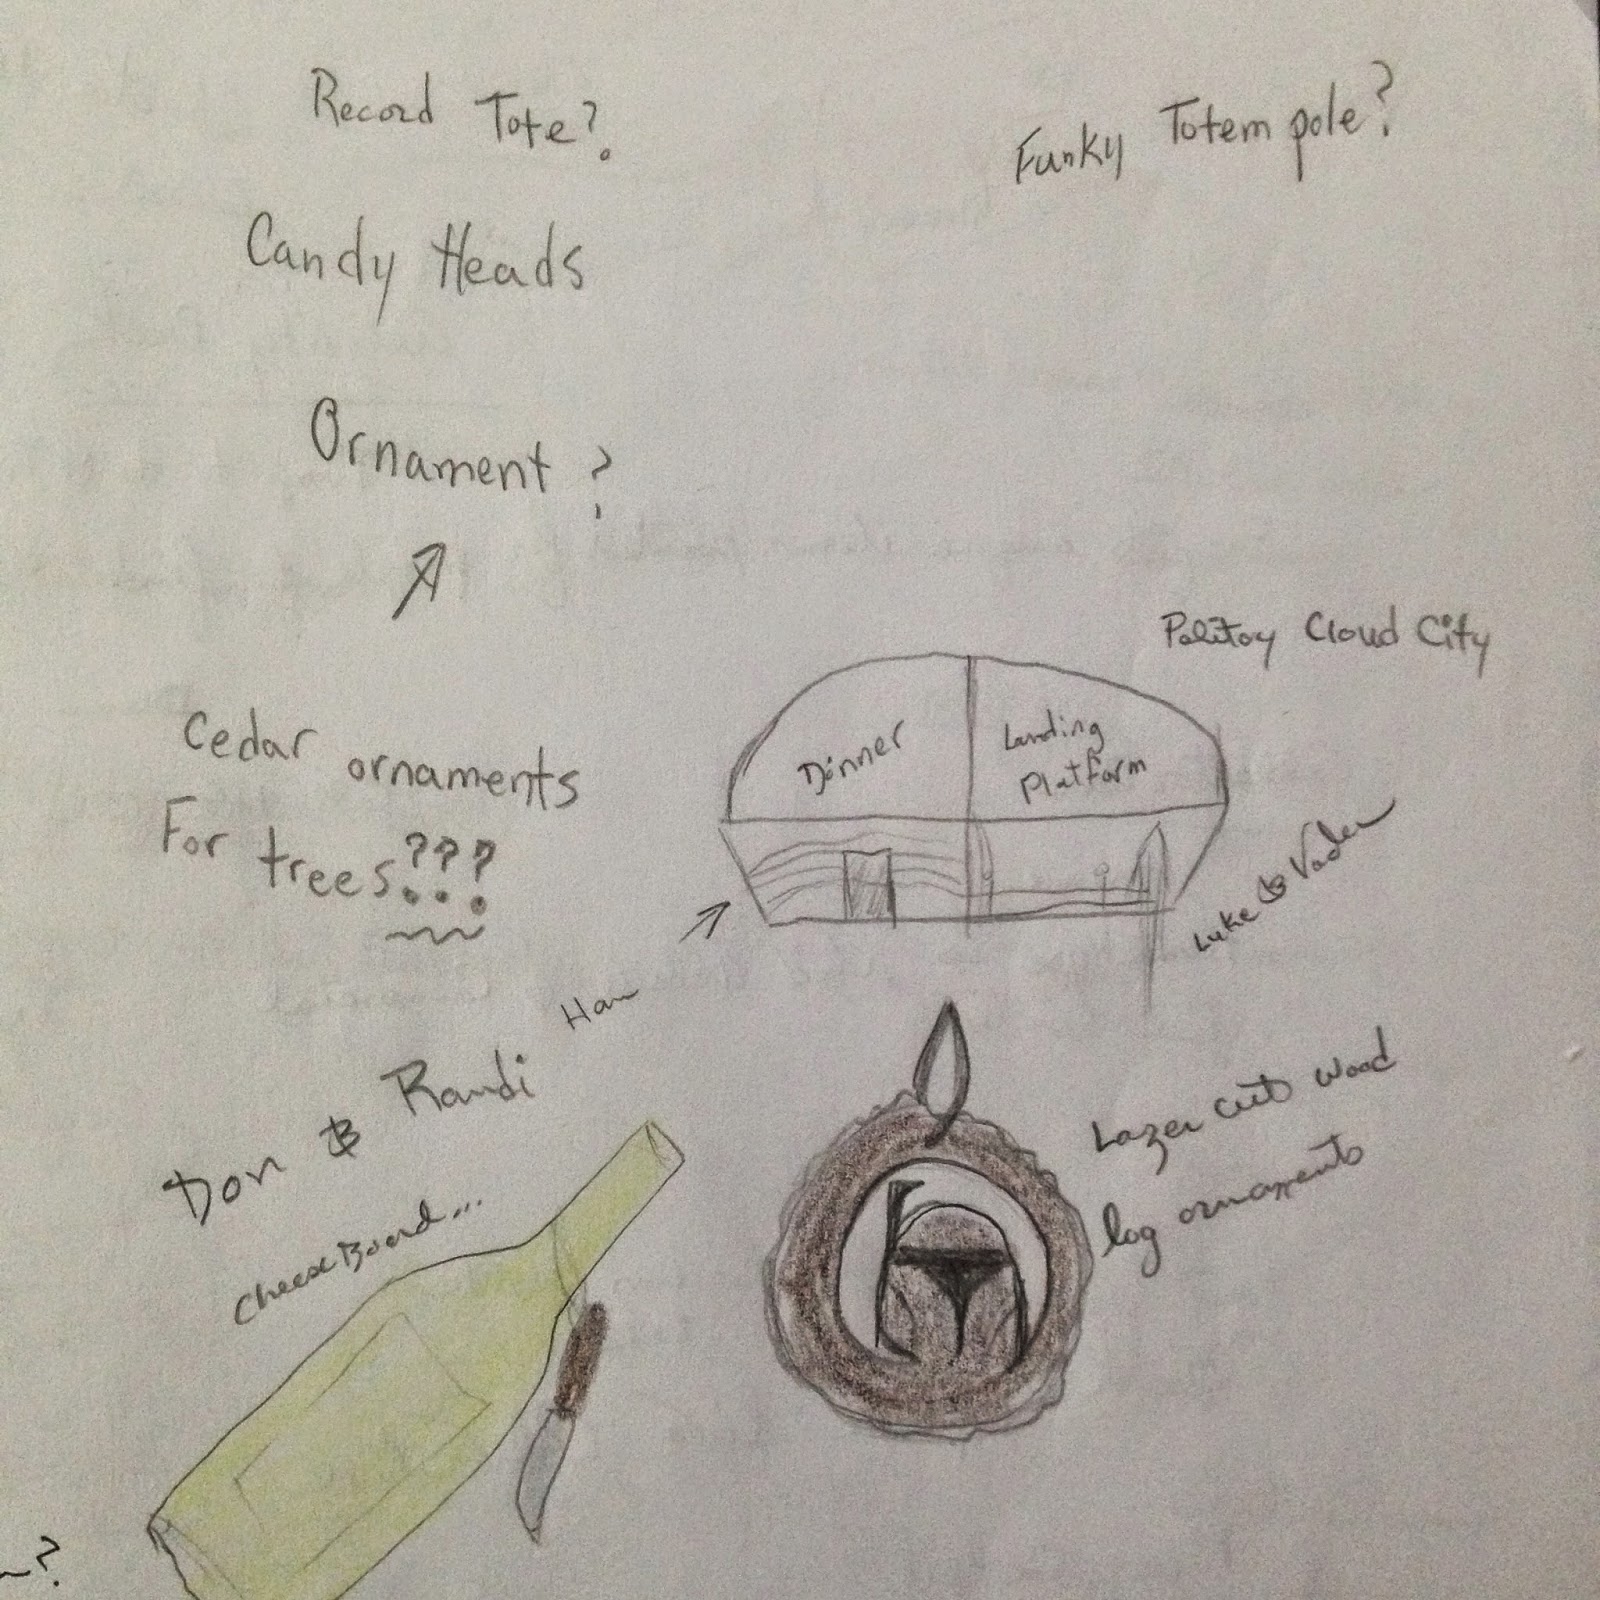 Record Tote?
Funky Totem pole?
Candy Heads
Ornament ?
Palitoy Cloud City
Cedar ornaments
For trees???
Dinner
Landing
Platform
Luke & Vader
Han
Don & Randi
Cheese Board...
Lazer cut wood
log ornaments